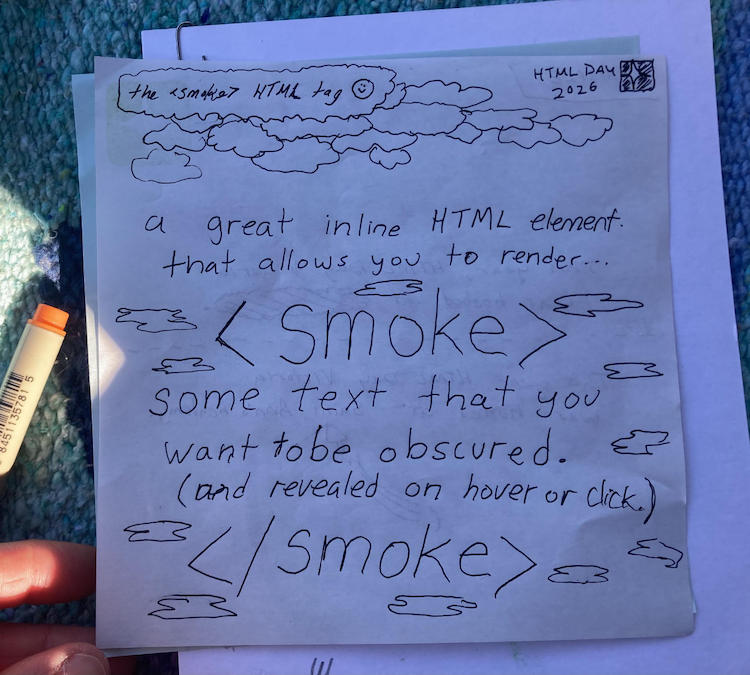 the <smoke> HTML tag
HTML DAY
2026
a great inline HTML element.
that allows you to render...
<smoke>
some text that you
want to be obscured.
(and revealed on hover or click.)
</smoke>
8451135781 5